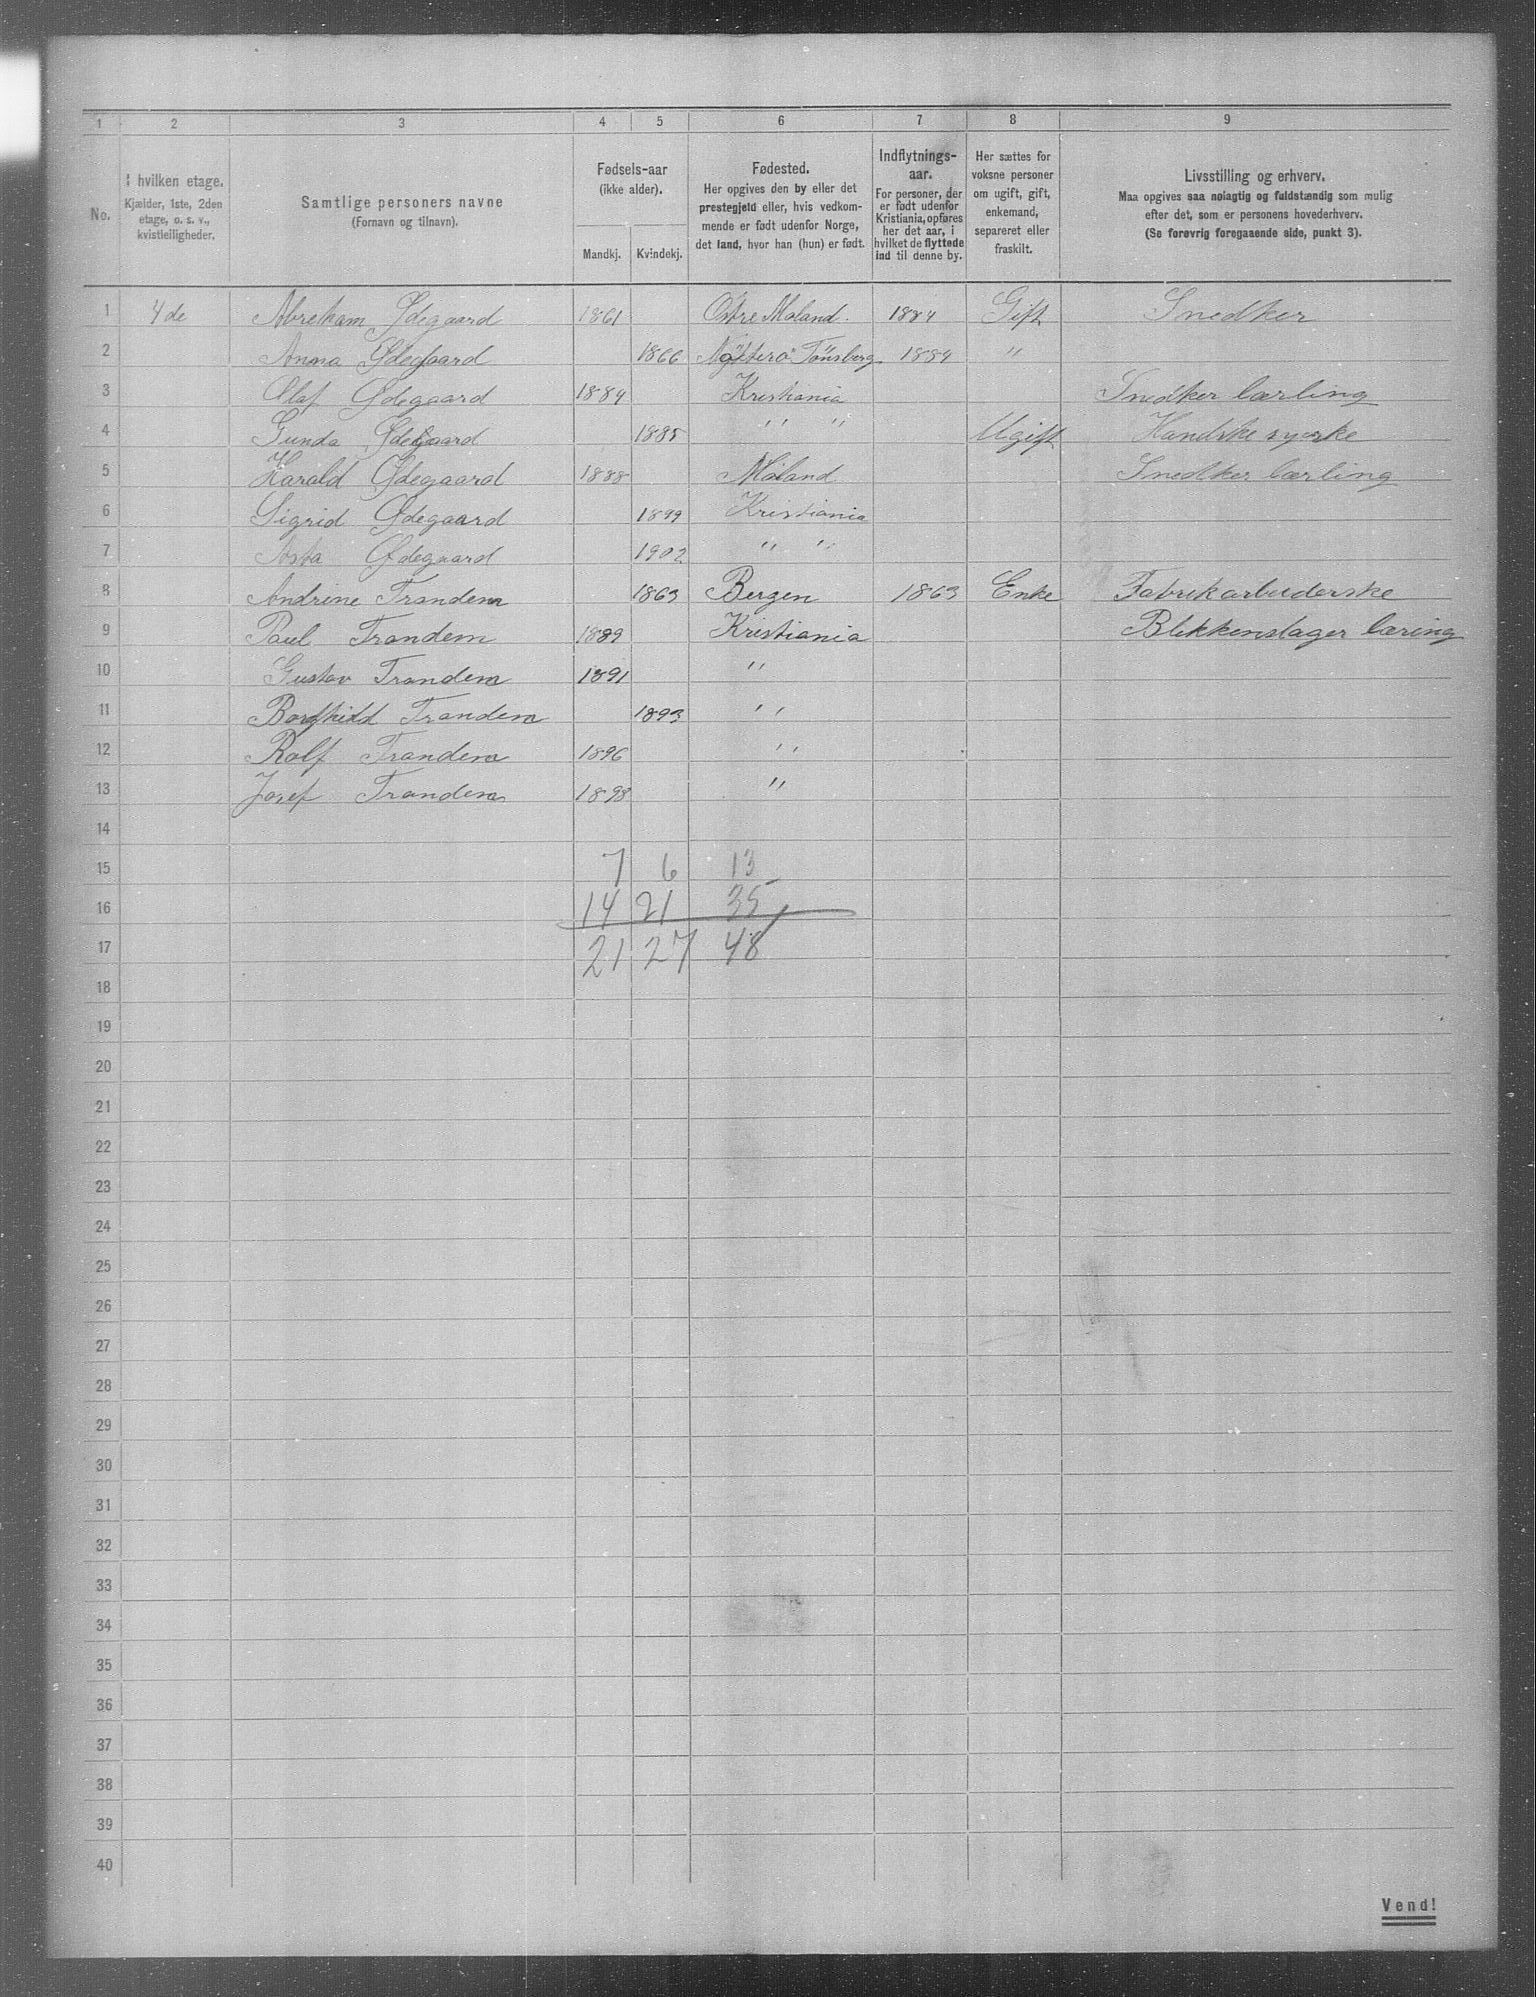 1 2 3 4 5 6 7 8 9
No.
I hvilken etage.
Kjælder, 1ste, 2den
etage, o. s. v.,
kvistleiligheder.
Samtlige personers navne
(Fornavn og tilnavn).
Fødsels-aar
(ikke alder).
Mandkj. Kvindekj.
Fødested.
Her opgives den by eller det
prestegjeld eller, hvis vedkom-
mende er født udenfor Norge,
det land, hvor han (hun) er født.
Indflytnings-
aar.
For personer, der
er født udenfor
Kristiania, opføres
her det aar, i
hvilket de flyttede
ind til denne by.
Her sættes for
voksne personer
om ugift, gift,
enkemand,
separeret eller
fraskilt.
Livsstilling og erhverv.
Maa opgives saa nøiagtig og fuldstændig som mulig
efter det, som er personens hovederhverv.
(Se forøvrig foregaaende side, punkt 3).
1 4de Abreham Ødegaard 1861 Ostre Moland. 1884 Gift Snedker
2 Anna Ødegaard 1866 Nøttero Tönsberg 1884 "
3 Olaf Ødegaard 1884 Kristiania Snedker lærling
4 Gunda Ødegaard 1885 " " Ugift Handske syerske
5 Harald Ødegaard 1888 Moland Snedker lærling
6 Sigrid Ødegaard 1899 Kristiania
7 Asta Ødegaard 1902 " "
8 Andrine Trandem 1863 Bergen 1863 Enke Fabrikarbeiderske
9 Paul Trandem 1889 Kristiania Blikkenslager læring
10 Gustav Trandem 1891 "
11 Borghild Trandem 1893 "
12 Rolf Trandem 1896 "
13 Josef Trandem 1898 "
14
15 7 6 13
16 14 21 35
17 21 27 48
18
19
20
21
22
23
24
25
26
27
28
29
30
31
32
33
34
35
36
37
38
39
40
Vend!